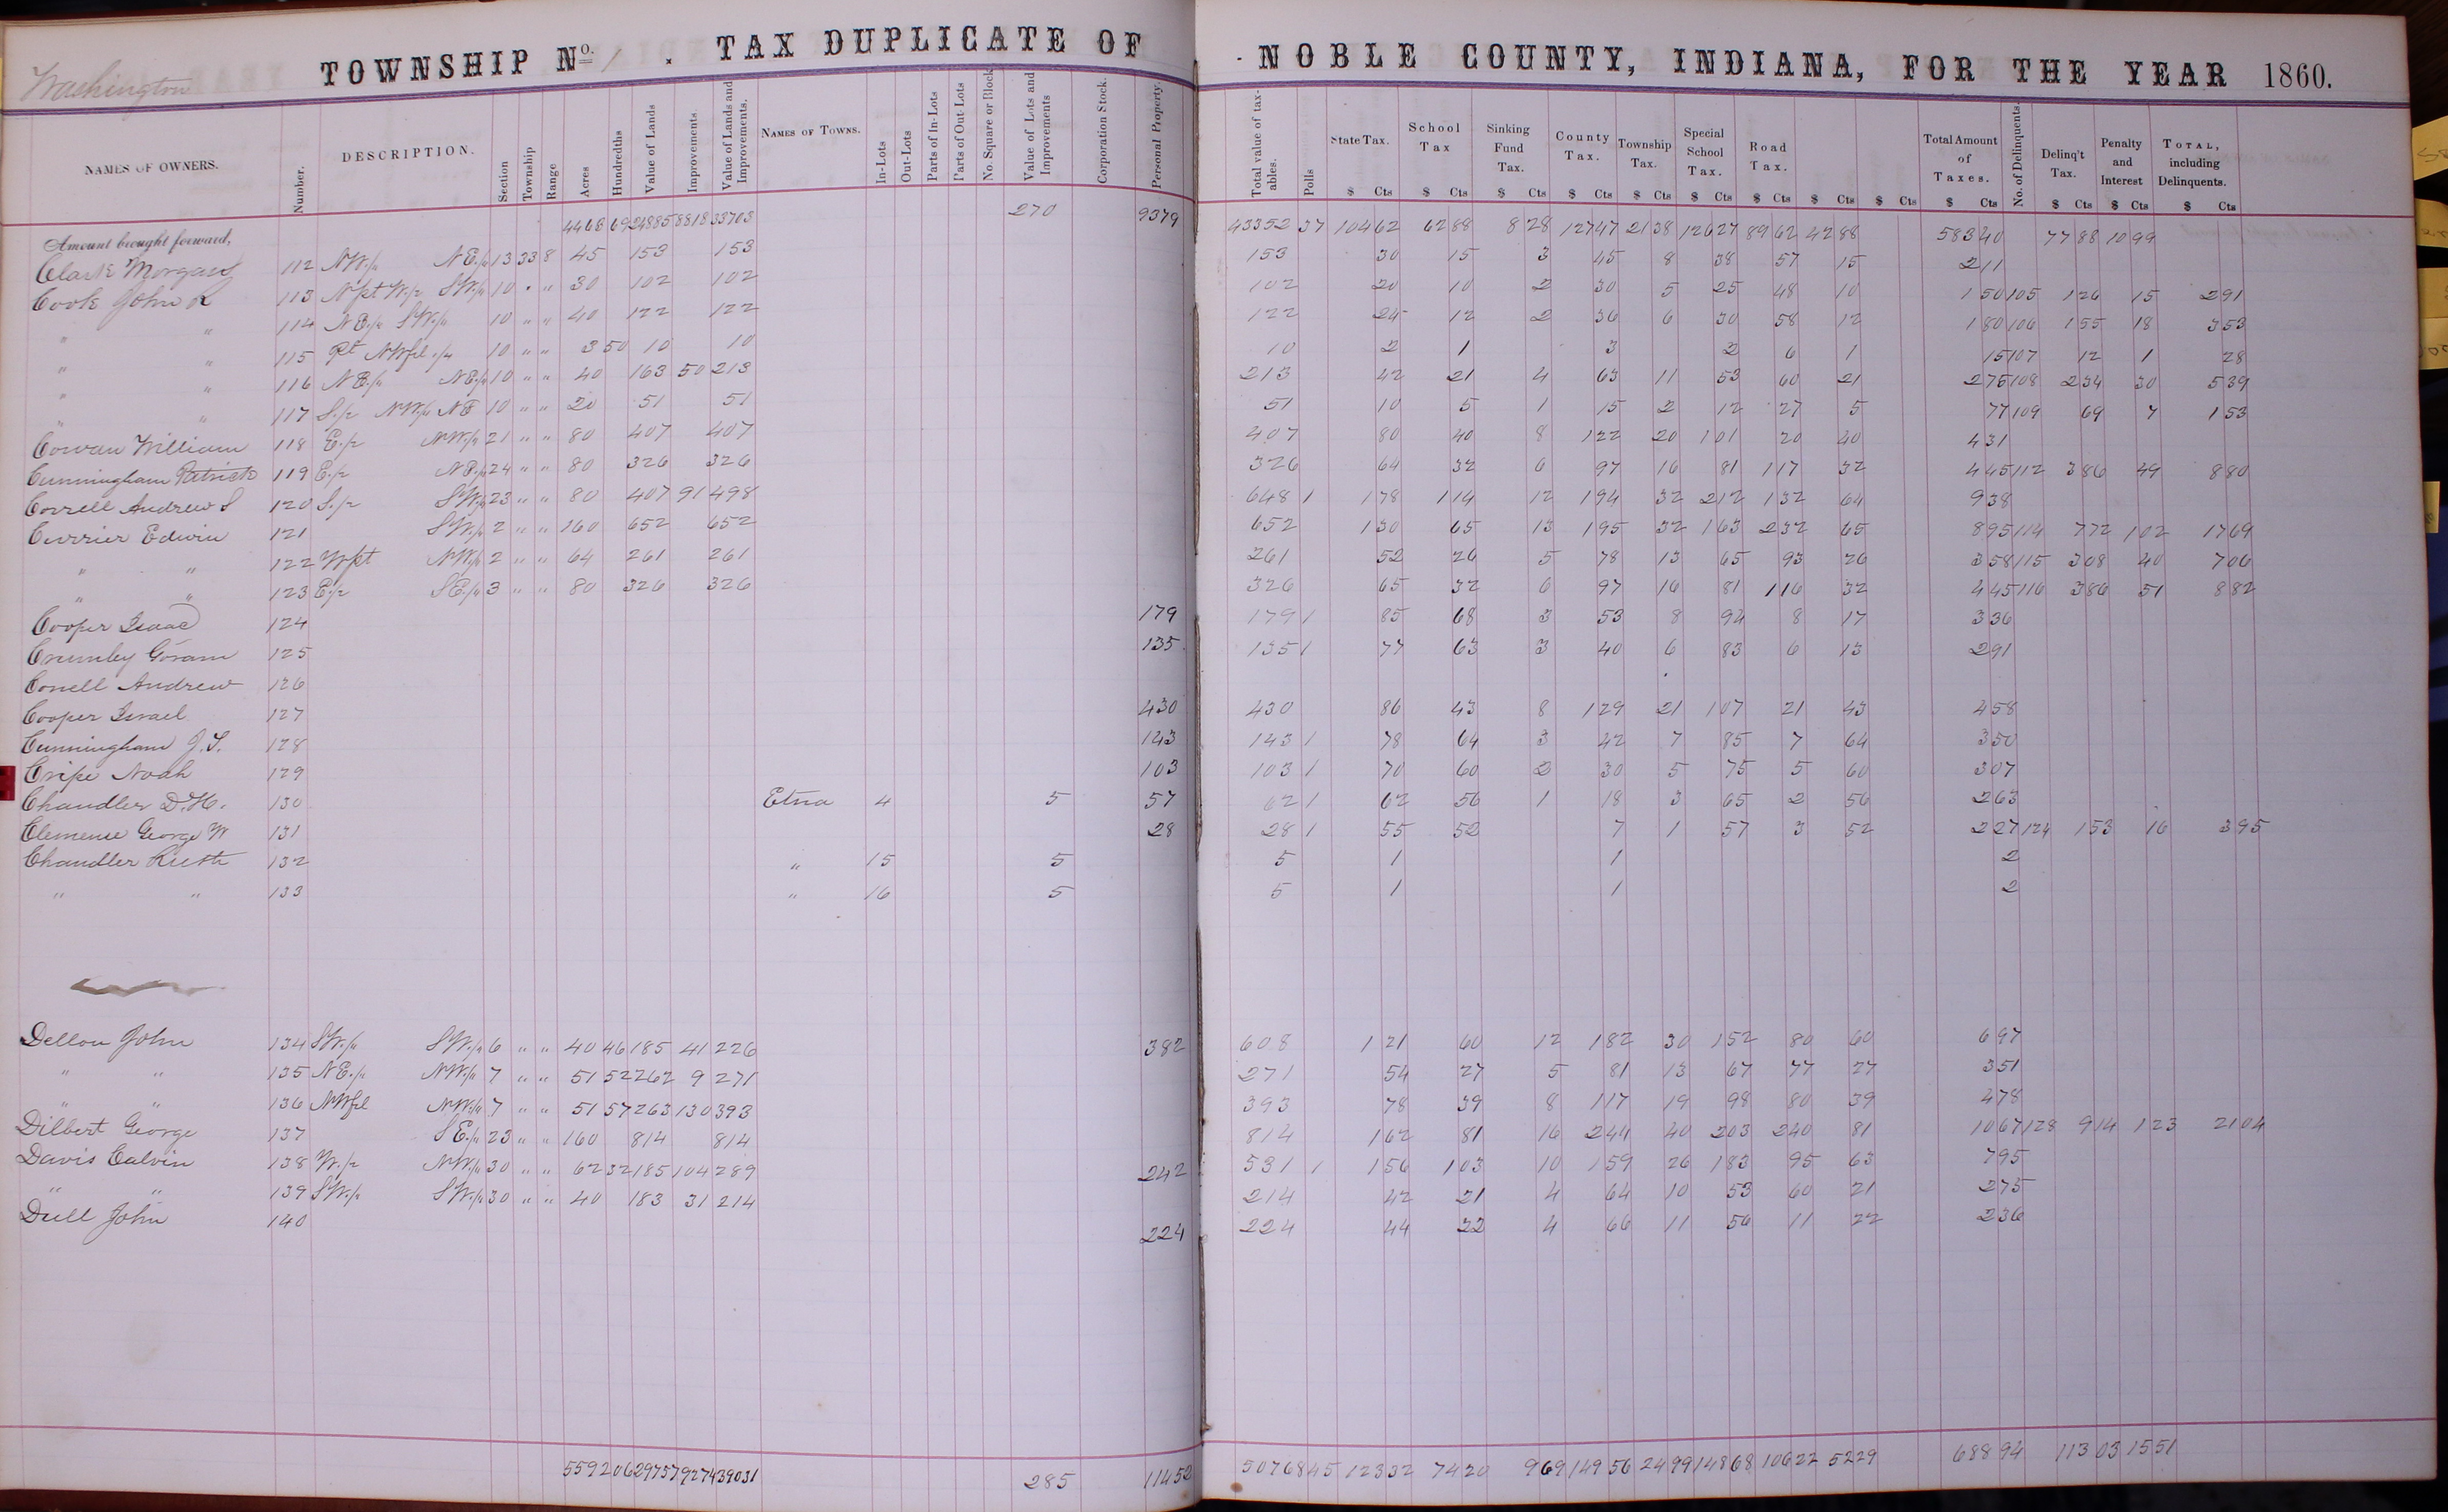 Washington
TOWNSHIP No. 1 . TAX DUPLICATE OF NOBLE COUNTY, INDIANA, FOR THE YEAR 1860.
NAMES OF OWNERS. Number. DESCRIPTION. Section Township Range Acres Hundredths Value of Lands Improvements Value of Lands and Improvements. NAMES OF TOWNS. In-Lots Out-Lots Parts of In-Lots Parts of Out-Lots No. Square or Block Value of Lots and Improvements Corporation Stock. Personal Property. Total value of taxables. Polls State Tax. School Tax Sinking Fund Tax. County Tax. Township Tax. Special School Tax. Road Tax. Total Amount of Taxes. No. of Delinquents. Delinq't Tax. Penalty and Interest TOTAL, including Delinquents.
$ Cts $ Cts $ Cts $ Cts $ Cts $ Cts $ Cts $ Cts $ Cts $ Cts $ Cts $ Cts $ Cts
Amount brought forward, 4468 69 24885 8818 33703 270 9379 43352 37 104 62 62 88 8 28 127 47 21 38 126 27 89 62 42 88 583 40 77 88 10 99
Clark Morgan 112 NW/4 NE/4 13 33 8 45 153 153 153 30 15 3 45 8 38 57 15 2 11
Cook John R 113 Npt W/2 SW/4 10 " " 30 102 102 102 20 10 2 30 5 25 48 10 1 50 105 1 26 15 2 91
" " 114 NE/4 SW/4 10 " " 40 122 122 122 24 12 2 36 6 30 58 12 1 80 106 1 55 18 3 53
" " 115 Pt NWfl 1/4 10 " " 3 50 10 10 10 2 1 3 2 6 1 15 107 12 1 28
" " 116 NE/4 NE/4 10 " " 40 163 50 213 213 42 21 4 63 11 53 60 21 2 75 108 2 34 30 5 39
" " 117 S/2 NW/4 NE 10 " " 20 51 51 51 10 5 1 15 2 12 27 5 77 109 69 7 1 53
Cowan William 118 E/2 NW/4 21 " " 80 407 407 407 80 40 8 1 22 20 1 01 20 40 4 31
Cunningham Patrick 119 E/2 NE/4 24 " " 80 326 326 326 64 32 6 97 16 81 1 17 32 4 45 112 3 86 49 8 80
Correll Andrew S 120 S/2 SW/4 23 " " 80 407 91 498 648 1 1 78 1 14 12 1 94 32 2 12 1 32 64 9 38
Currier Edwin 121 SW/4 2 " " 160 652 652 652 1 30 65 13 1 95 32 1 63 2 32 65 8 95 114 7 72 1 02 17 69
" " 122 Wpt NW/4 2 " " 64 261 261 261 52 26 5 78 13 65 93 26 3 58 115 3 08 40 7 06
" " 123 E/2 SE/4 3 " " 80 326 326 326 65 32 6 97 16 81 1 16 32 4 45 116 3 86 51 8 82
Cooper Isaac 124 179 179 1 85 68 3 53 8 94 8 17 3 36
Crumley Goram 125 135 135 1 77 63 3 40 6 83 6 13 2 91
Conell Andrew 126
Cooper Israel 127 430 430 86 43 8 1 29 21 1 07 21 43 4 58
Cunningham J.S. 128 143 143 1 78 64 3 42 7 85 7 64 3 50
Cripe Noah 129 103 103 1 70 60 2 30 5 75 5 60 3 07
Chandler D.H. 130 Etna 4 5 57 62 1 62 56 1 18 3 65 2 56 2 63
Clemense George W 131 28 28 1 55 52 7 1 57 3 52 2 27 124 1 53 16 3 95
Chandler Ruth 132 " 15 5 5 1 1 2
" " 133 " 16 5 5 1 1 2
Dellon John 134 SW/4 SW/4 6 " " 40 46 185 41 226 382 608 1 21 60 12 1 82 30 1 52 80 60 6 97
" " 135 NE/4 NW/4 7 " " 51 52 262 9 271 271 54 27 5 81 13 67 77 27 3 51
" " 136 NWfl NW/4 7 " " 51 57 263 130 393 393 78 39 8 1 17 19 98 80 39 4 78
Dilbert George 137 SE/4 23 " " 160 814 814 814 1 62 81 16 2 44 40 2 03 2 40 81 10 67 128 9 14 1 23 21 04
Davis Calvin 138 W/2 NW/4 30 " " 62 32 185 104 289 242 531 1 1 56 1 03 10 1 59 26 1 83 95 63 7 95
" " 139 SW/4 SW/4 30 " " 40 183 31 214 214 42 21 4 64 10 53 60 21 2 75
Dull John 140 224 224 44 22 4 66 11 56 11 22 2 36
5592 06 29757 9274 39031 285 11452 50768 45 123 32 74 20 9 69 149 56 24 99 148 68 106 22 52 29 688 94 113 03 15 51